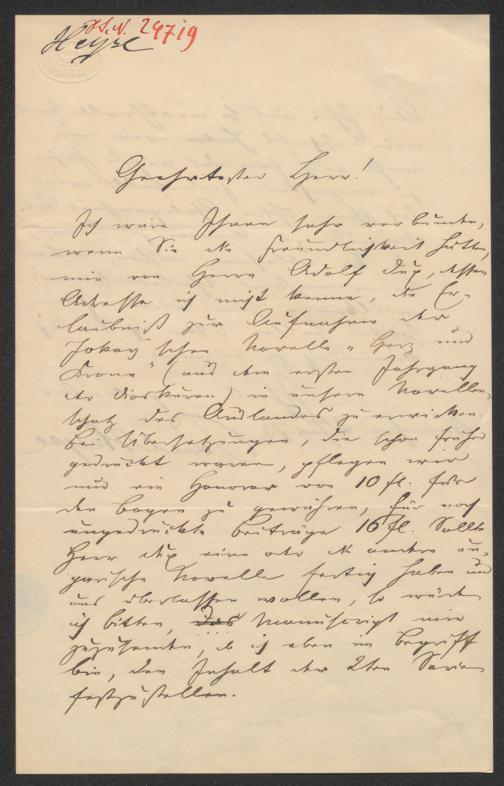 H.I.N. 29719
Heyse
Geehrtester Herr!
Ich wäre Ihnen sehr verbunden,
wenn Sie die Freundlichkeit hätten,
mir von Herrn Adolf Dux, dessen
Adresse ich nicht kenne, die Er-
laubniß zur Aufnahme der
Jokay'schen Novelle „Herz und
Krone" (aus dem ersten Jahrgang
der Dioskuren) in unsern Novellen-
schatz des Auslandes zu erwirken.
Bei Übersetzungen, die schon früher
gedruckt waren, pflegen wir
nur ein Honorar von 10 fl. für
den Bogen zu gewähren, für noch
ungedruckte Beiträge 16 fl. Sollte
Herr Dux eine oder die andre un-
garische Novelle fertig haben und
uns überlassen wollen, so würde
ich bitten, das Manuscript mir
zuzusenden, da ich eben im Begriff
bin, den Inhalt der 2ten Serie
festzustellen.